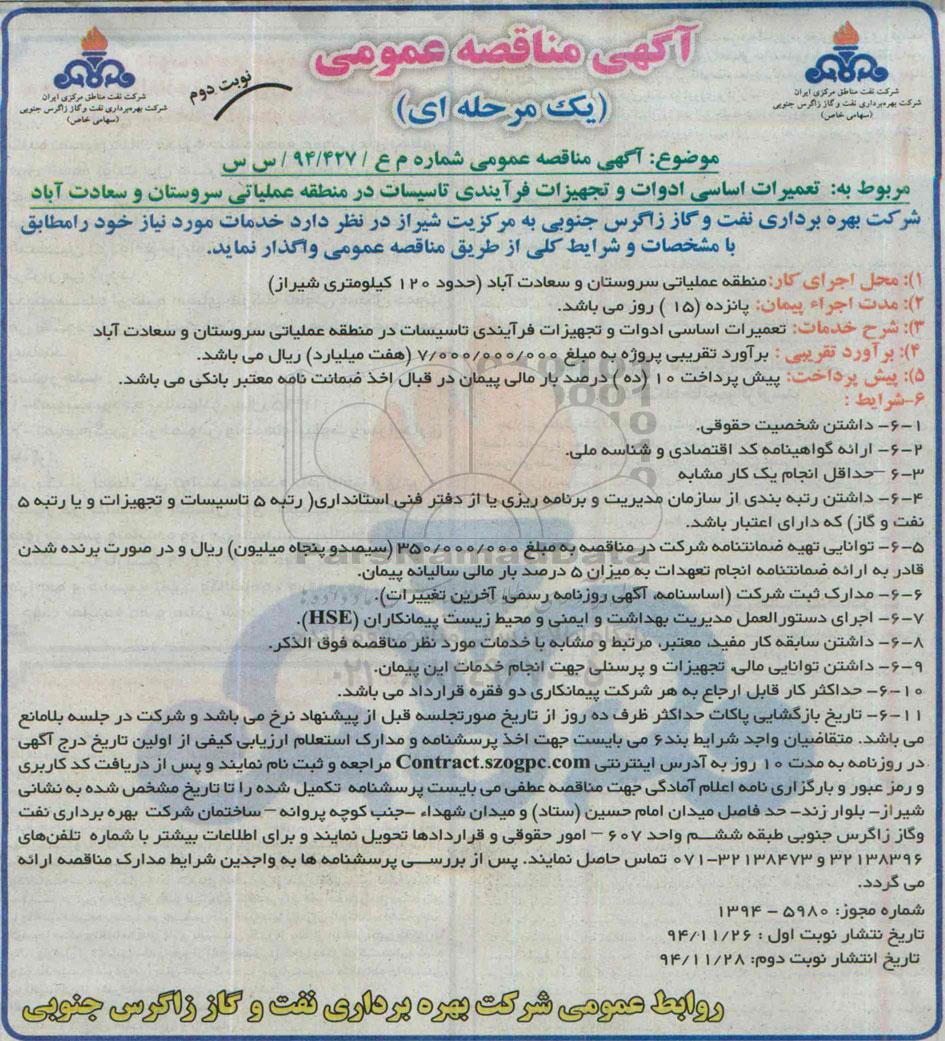 آگهی مناقصه عمومی
(یک مرحله ای)
نوبت دوم
شرکت نفت مناطق مرکزی ایران
شرکت بهره‌برداری نفت و گاز زاگرس جنوبی
(سهامی خاص)
شرکت نفت مناطق مرکزی ایران
شرکت بهره‌برداری نفت و گاز زاگرس جنوبی
(سهامی خاص)
موضوع: آگهی مناقصه عمومی شماره م ع / ۹۴/۴۲۷ / س س
مربوط به: تعمیرات اساسی ادوات و تجهیزات فرآیندی تاسیسات در منطقه عملیاتی سروستان و سعادت آباد
شرکت بهره برداری نفت و گاز زاگرس جنوبی به مرکزیت شیراز در نظر دارد خدمات مورد نیاز خود رامطابق
با مشخصات و شرایط کلی از طریق مناقصه عمومی واگذار نماید.
۱): محل اجرای کار: منطقه عملیاتی سروستان و سعادت آباد (حدود ۱۲۰ کیلومتری شیراز)
۲): مدت اجراء پیمان: پانزده (۱۵ ) روز می باشد.
۳): شرح خدمات: تعمیرات اساسی ادوات و تجهیزات فرآیندی تاسیسات در منطقه عملیاتی سروستان و سعادت آباد
۴): برآورد تقریبی : برآورد تقریبی پروژه به مبلغ ۷/۰۰۰/۰۰۰/۰۰۰ (هفت میلیارد) ریال می باشد.
۵): پیش پرداخت: پیش پرداخت ۱۰ (ده ) درصد بار مالی پیمان در قبال اخذ ضمانت نامه معتبر بانکی می باشد.
۶-شرایط :
۶-۱- داشتن شخصیت حقوقی.
۶-۲- ارائه گواهینامه کد اقتصادی و شناسه ملی.
۶-۳ –حداقل انجام یک کار مشابه
۶-۴- داشتن رتبه بندی از سازمان مدیریت و برنامه ریزی یا از دفتر فنی استانداری( رتبه ۵ تاسیسات و تجهیزات و یا رتبه ۵
نفت و گاز) که دارای اعتبار باشد.
۶-۵- توانایی تهیه ضمانتنامه شرکت در مناقصه به مبلغ ۳۵۰/۰۰۰/۰۰۰ (سیصدو پنجاه میلیون) ریال و در صورت برنده شدن
قادر به ارائه ضمانتنامه انجام تعهدات به میزان ۵ درصد بار مالی سالیانه پیمان.
۶-۶- مدارک ثبت شرکت (اساسنامه، آگهی روزنامه رسمی، آخرین تغییرات).
۶-۷- اجرای دستورالعمل مدیریت بهداشت و ایمنی و محیط زیست پیمانکاران (HSE).
۶-۸- داشتن سابقه کار مفید، معتبر، مرتبط و مشابه با خدمات مورد نظر مناقصه فوق الذکر.
۶-۹- داشتن توانایی مالی، تجهیزات و پرسنلی جهت انجام خدمات این پیمان.
۶-۱۰- حداکثر کار قابل ارجاع به هر شرکت پیمانکاری دو فقره قرارداد می باشد.
۶-۱۱- تاریخ بازگشایی پاکات حداکثر ظرف ده روز از تاریخ صورتجلسه قبل از پیشنهاد نرخ می باشد و شرکت در جلسه بلامانع
می باشد. متقاضیان واجد شرایط بند۶ می بایست جهت اخذ پرسشنامه و مدارک استعلام ارزیابی کیفی از اولین تاریخ درج آگهی
در روزنامه به مدت ۱۰ روز به آدرس اینترنتی Contract.szogpc.com مراجعه و ثبت نام نمایند و پس از دریافت کد کاربری
و رمز عبور و بارگزاری نامه اعلام آمادگی جهت مناقصه عطفی می بایست پرسشنامه تکمیل شده را تا تاریخ مشخص شده به نشانی
شیراز- بلوار زند- حد فاصل میدان امام حسین (ستاد) و میدان شهداء –جنب کوچه پروانه – ساختمان شرکت بهره برداری نفت
وگاز زاگرس جنوبی طبقه ششم واحد ۶۰۷ – امور حقوقی و قراردادها تحویل نمایند و برای اطلاعات بیشتر با شماره تلفن‌های
۳۲۱۳۸۳۹۶ و ۳۲۱۳۸۴۷۳-۰۷۱ تماس حاصل نمایند. پس از بررسی پرسشنامه ها به واجدین شرایط مدارک مناقصه ارائه
می گردد.
شماره مجوز: ۵۹۸۰ - ۱۳۹۴
تاریخ نتشار نوبت اول : ۹۴/۱۱/۲۶
تاریخ انتشار نوبت دوم: ۹۴/۱۱/۲۸
روابط عمومی شرکت بهره برداری نفت و گاز زاگرس جنوبی
ParsNamadData